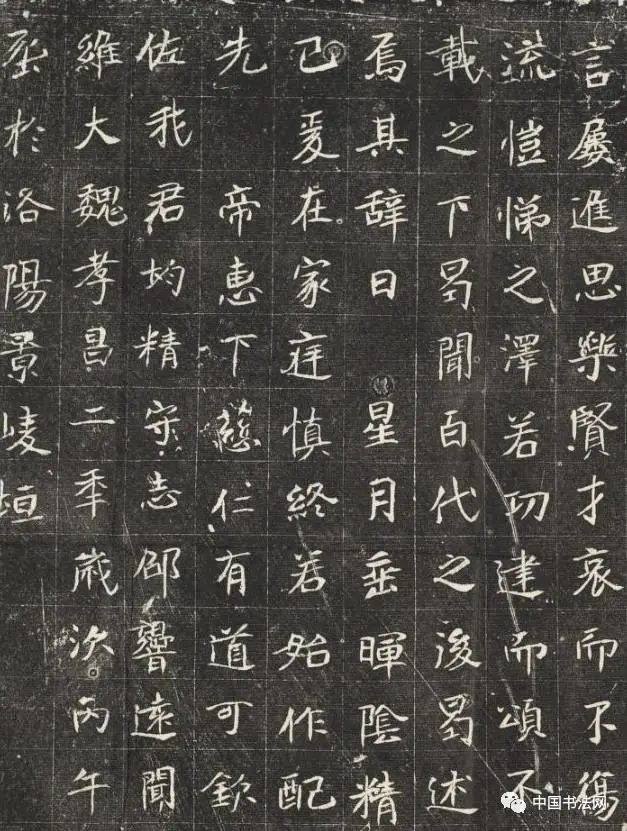 言屢進思樂賢才哀而不傷
流愷悌之澤若功建而頌不
載之下曷聞百代之後曷述
焉其辭曰 星月垂暉陰精
已爰在家庭慎終若始作配
先 帝惠下慈仁有道可欽
佐我君均精守志邵響遠聞
維大魏孝昌二年歲次丙午
於洛陽景陵垣
中国书法网